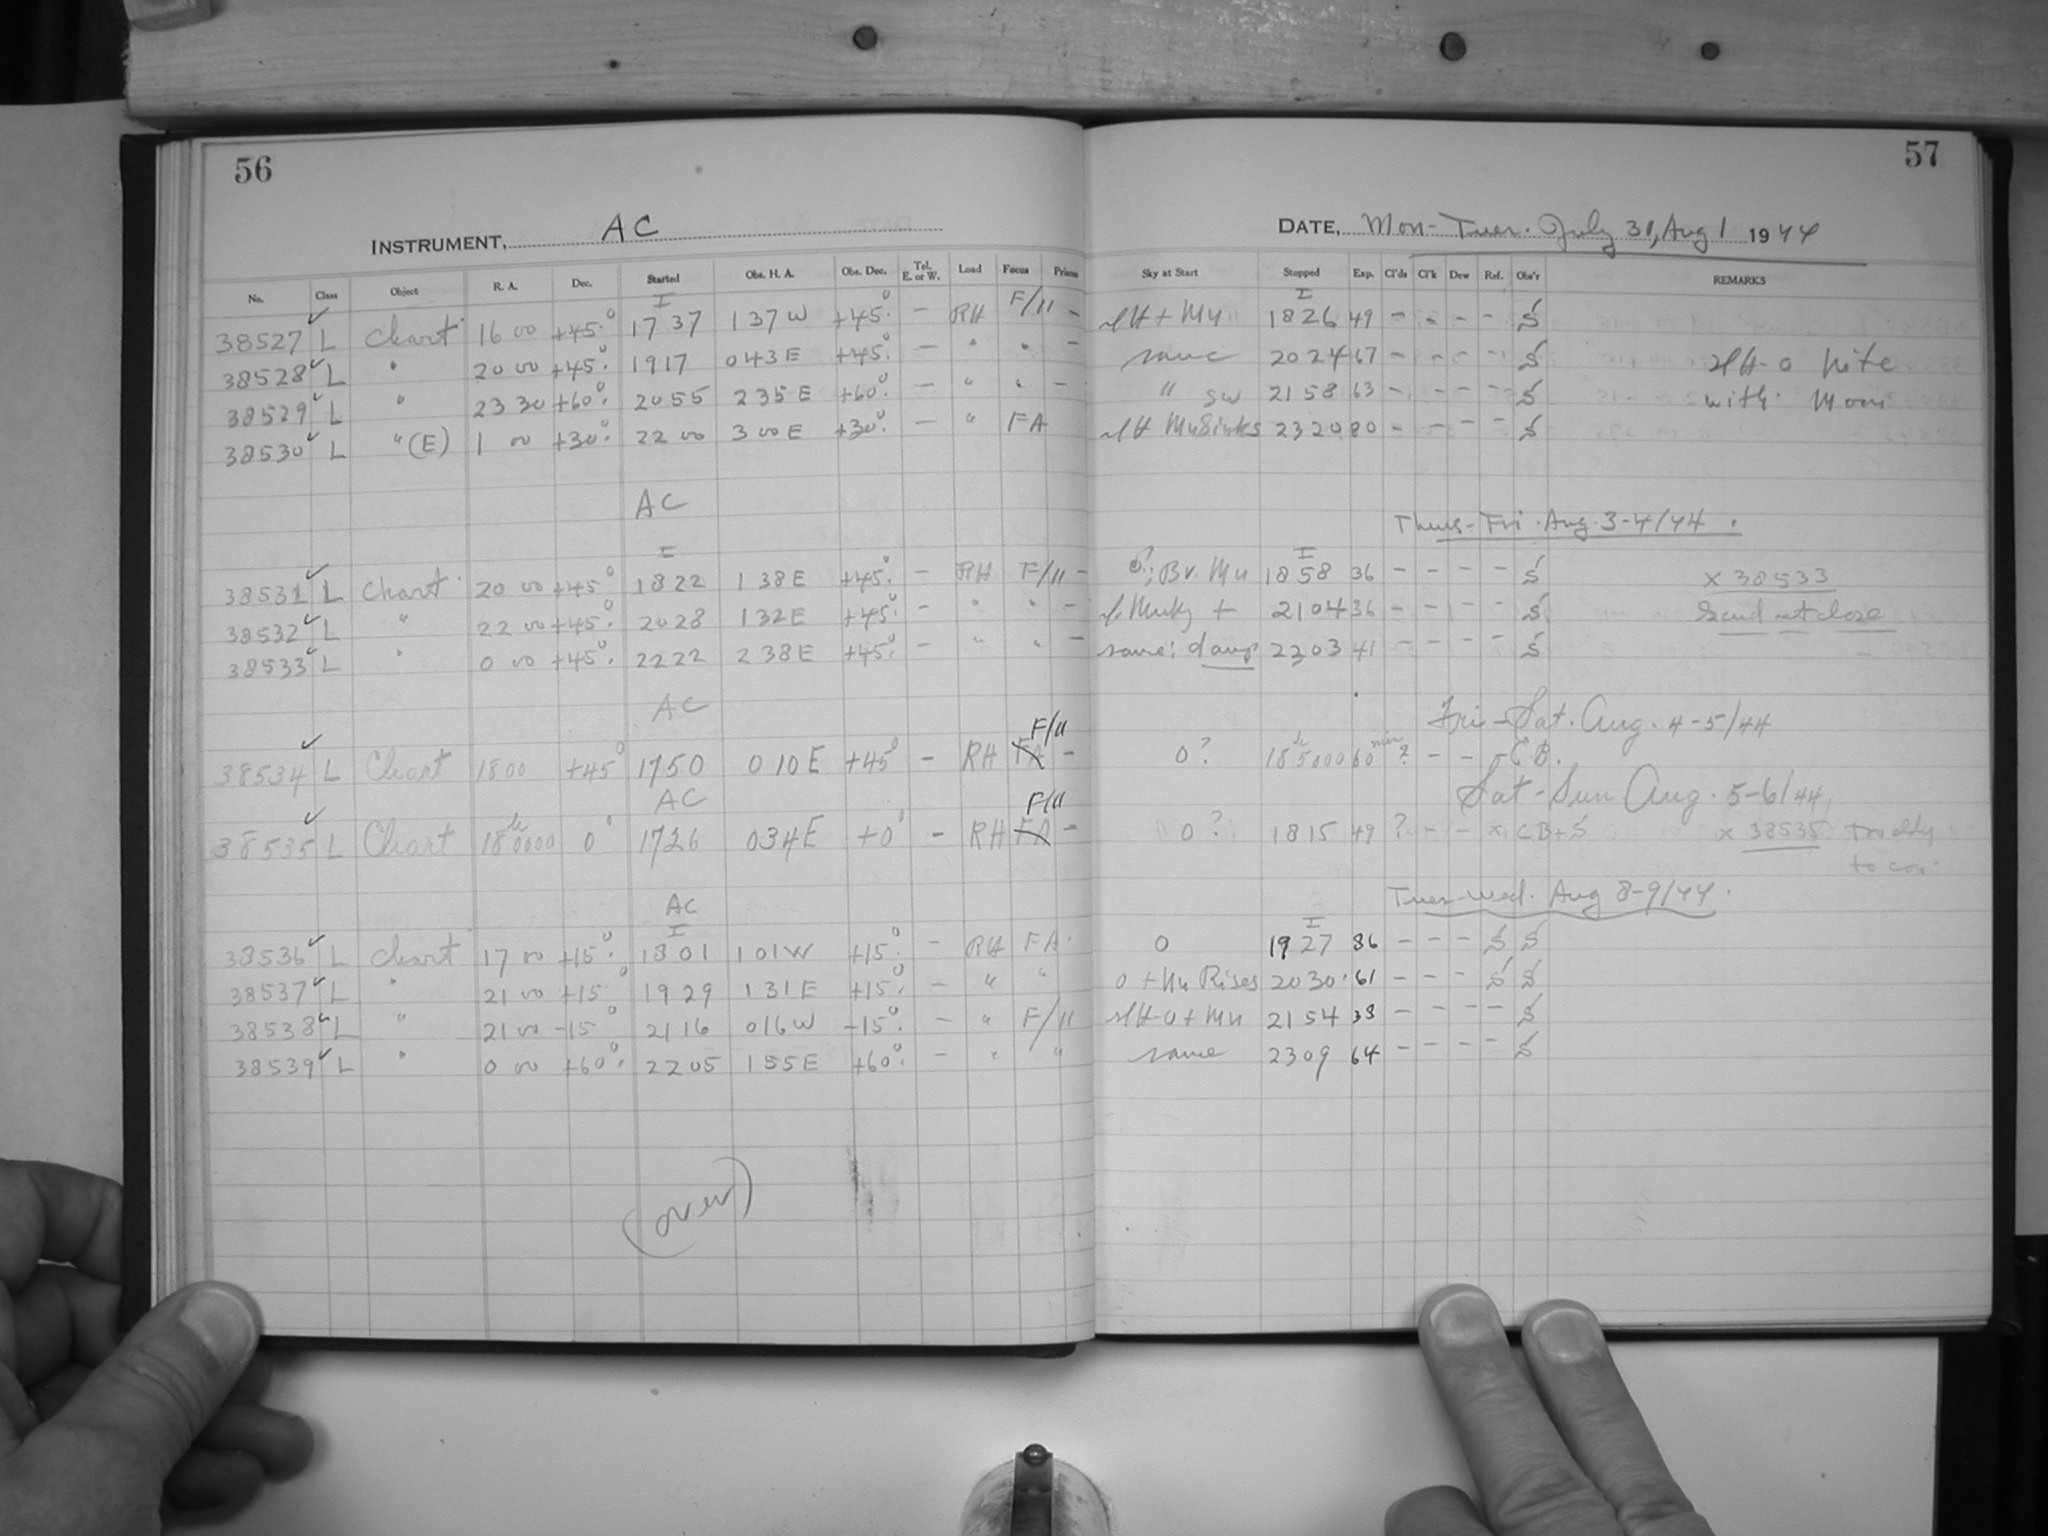 56
INSTRUMENT, AC
No. Class Object R. A. Dec. Started Obs. H. A. Obs. Dec. Tel. E. or W. Load Focus Prism
I
38527 L Chart 16 00 +45° 1737 137 W +45° - RH F/11 -
38528 L " 20 00 +45° 1917 043 E +45° - " " -
38529 L " 23 30 +60° 2055 235 E +60° - " " -
38530 L " (E) 1 00 +30° 2200 300 E +30° - " FA
AC
I
38531 L Chart 20 00 +45° 1822 138 E +45° - RH F/11 -
38532 L " 22 00 +45° 2028 132 E +45° - " " -
38533 L " 0 00 +45° 2222 238 E +45° - " " -
AC
F/11
38534 L Chart 1800 +45° 1750 010 E +45° - RH FA -
AC
F/11
38535 L Chart 18h 0000 0° 1726 034 E +0° - RH FA -
AC
I
38536 L Chart 17 00 +15° 1801 101 W +15° - RH FA
38537 L " 21 00 +15° 1929 131 E +15° - " "
38538 L " 21 00 -15° 2116 016 W -15° - " F/11
38539 L " 0 00 +60° 2205 155 E +60° - " "
(over)
57
DATE, Mon-Tues. July 31, Aug 1 1944
Sky at Start Stopped Exp. Cl'ds Cl'k Dew Ref. Obs'r REMARKS
I
+ Mn 1826 49 - - - - S
same 2024 67 - - - - S
" SW 2158 63 - - - - S
Mn Sinks 2320 80 - - - - S
nite
with Moon
Thurs-Fri. Aug. 3-4/44.
I
Br. Mn 1858 36 - - - - S X 38533
Murky + 2104 36 - - - - S
same; damp 2303 41 - - - - S
Fri-Sat. Aug. 4-5/44
0? 18h 5000 60 min ? - - - CB.
Sat-Sun Aug. 5-6/44
0? 1815 49 ? - - x CB+S x 38535
Tues-Wed. Aug 8-9/44.
I
0 1927 86 - - - S S
0 + Mn Rises 2030 61 - - - S S
2154 38 - - - - S
same 2309 64 - - - - S